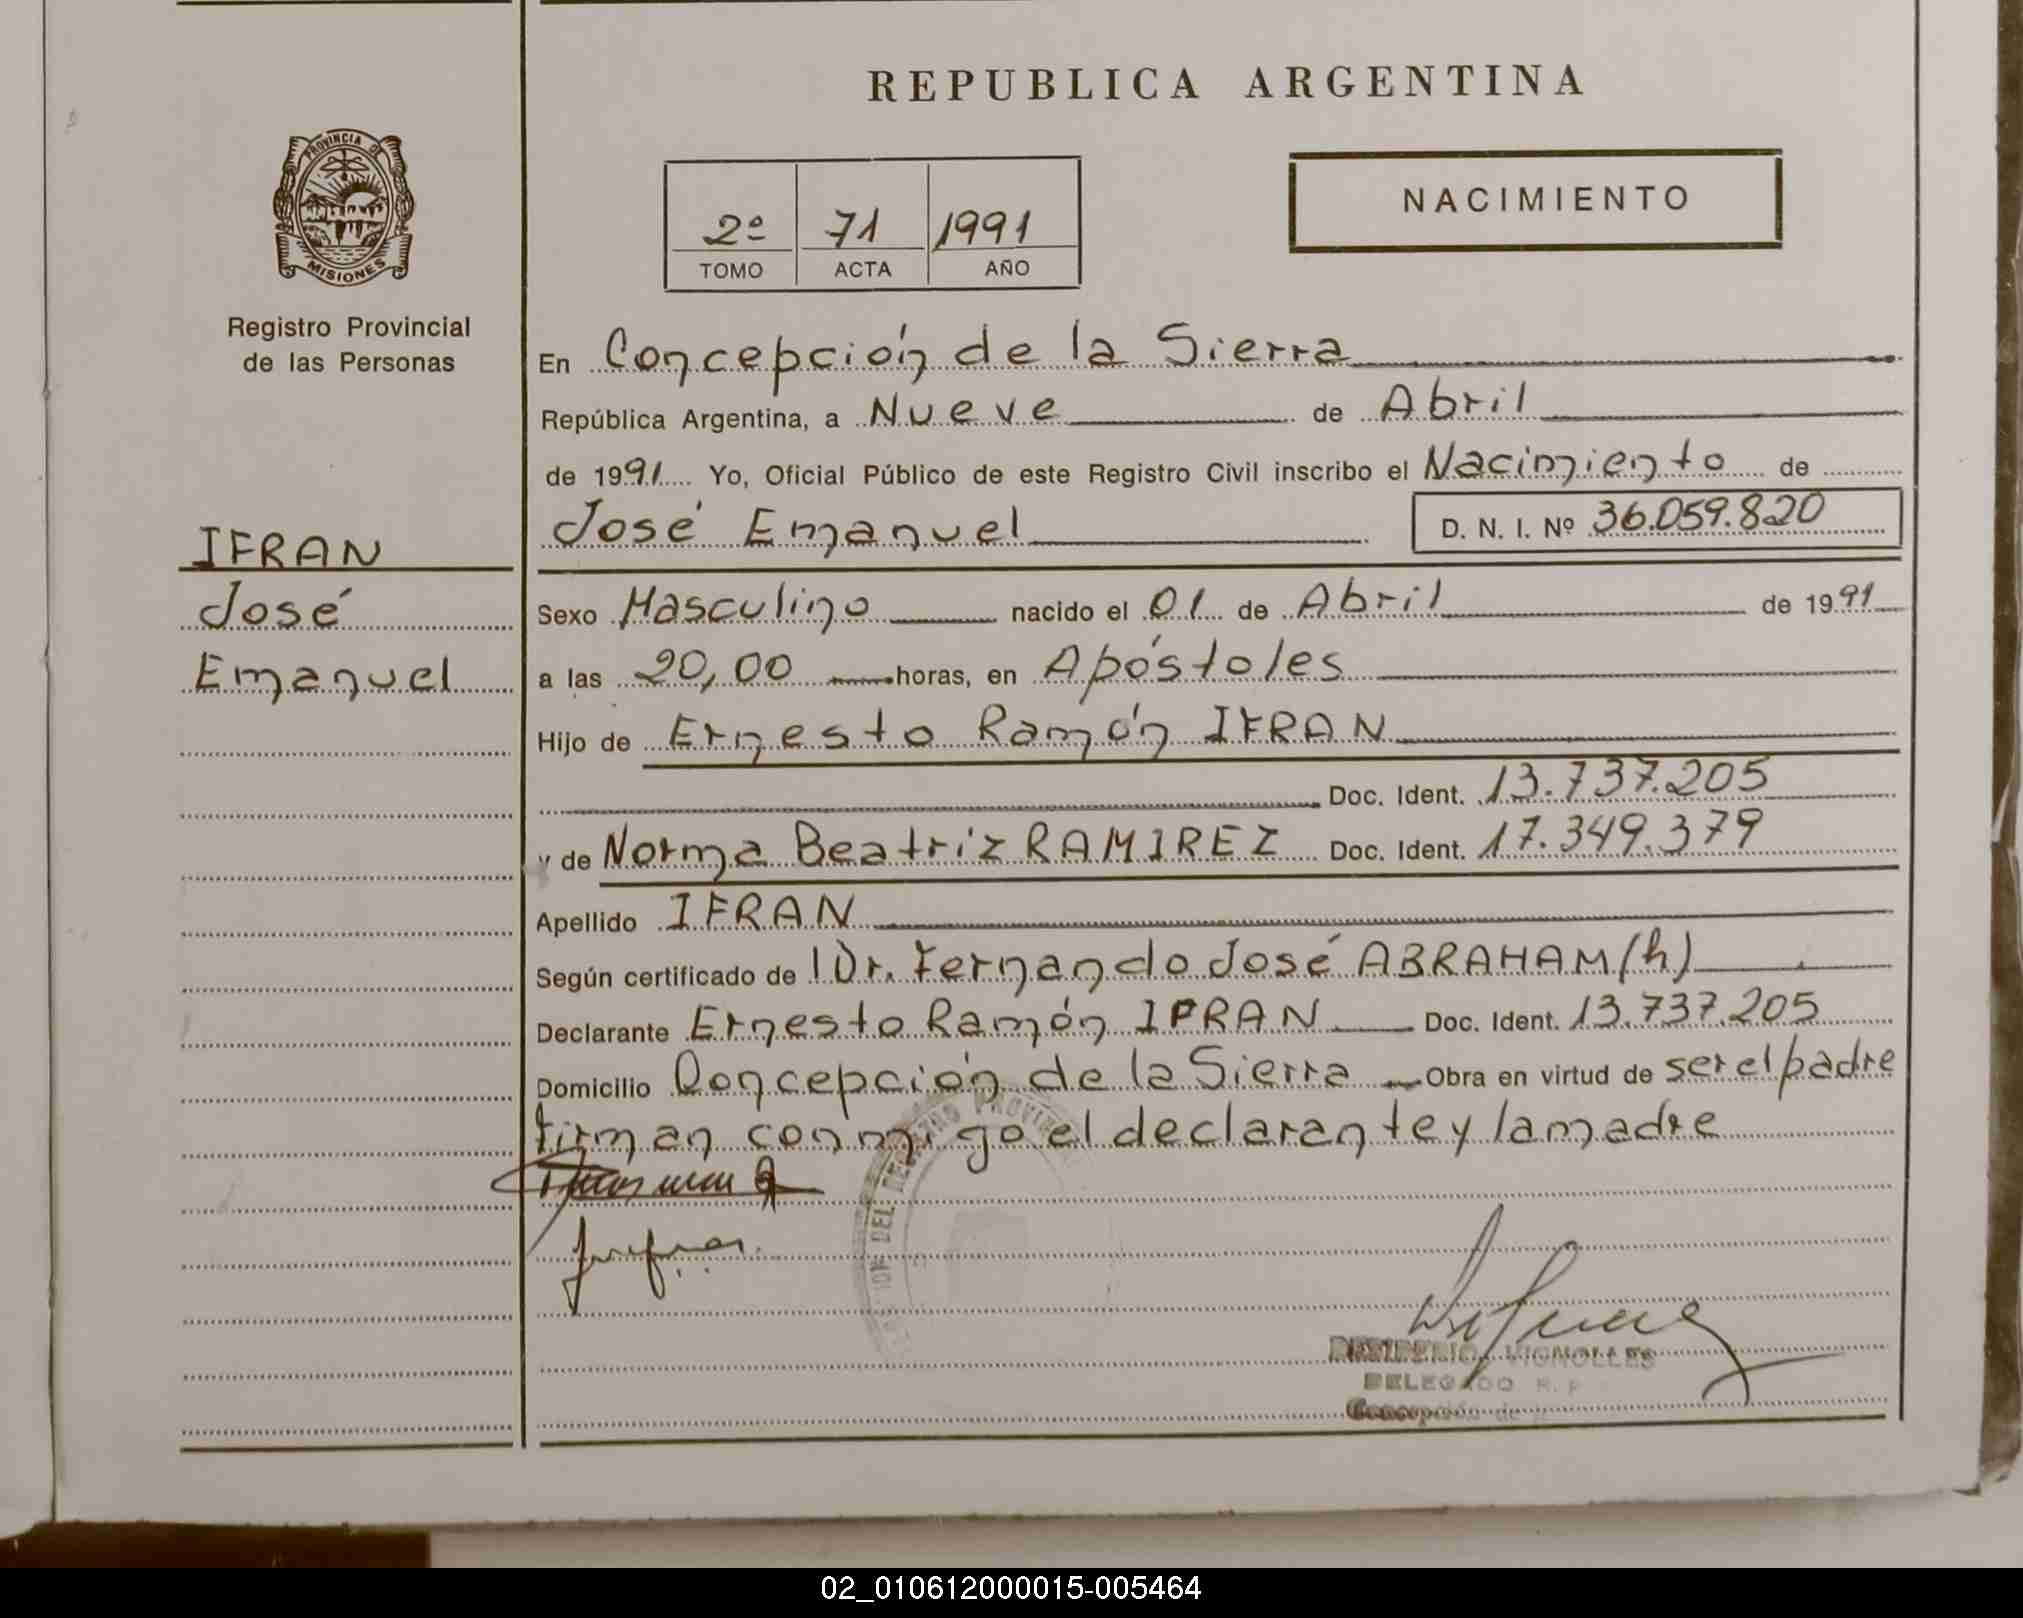 REPUBLICA ARGENTINA
PROVINCIA DE
MISIONES
Registro Provincial
de las Personas
2º 71 1991
TOMO ACTA AÑO
NACIMIENTO
IFRAN
José
Emanuel
En Concepción de la Sierra
República Argentina, a Nueve de Abril
de 1991 Yo, Oficial Público de este Registro Civil inscribo el Nacimiento de
José Emanuel D. N. I. Nº 36.059.820
Sexo Masculino nacido el 01 de Abril de 1991
a las 20,00 horas, en Apóstoles
Hijo de Ernesto Ramón IFRAN
Doc. Ident. 13.737.205
y de Norma Beatriz RAMIREZ Doc. Ident. 17.349.379
Apellido IFRAN
Según certificado de Dr. Fernando José ABRAHAM (h)
Declarante Ernesto Ramón IFRAN Doc. Ident. 13.737.205
Domicilio Concepción de la Sierra Obra en virtud de ser el padre
firman conmigo el declarante y la madre
VIGNOLLES
DELEGADO R. P
Concepción de
02_010612000015-005464